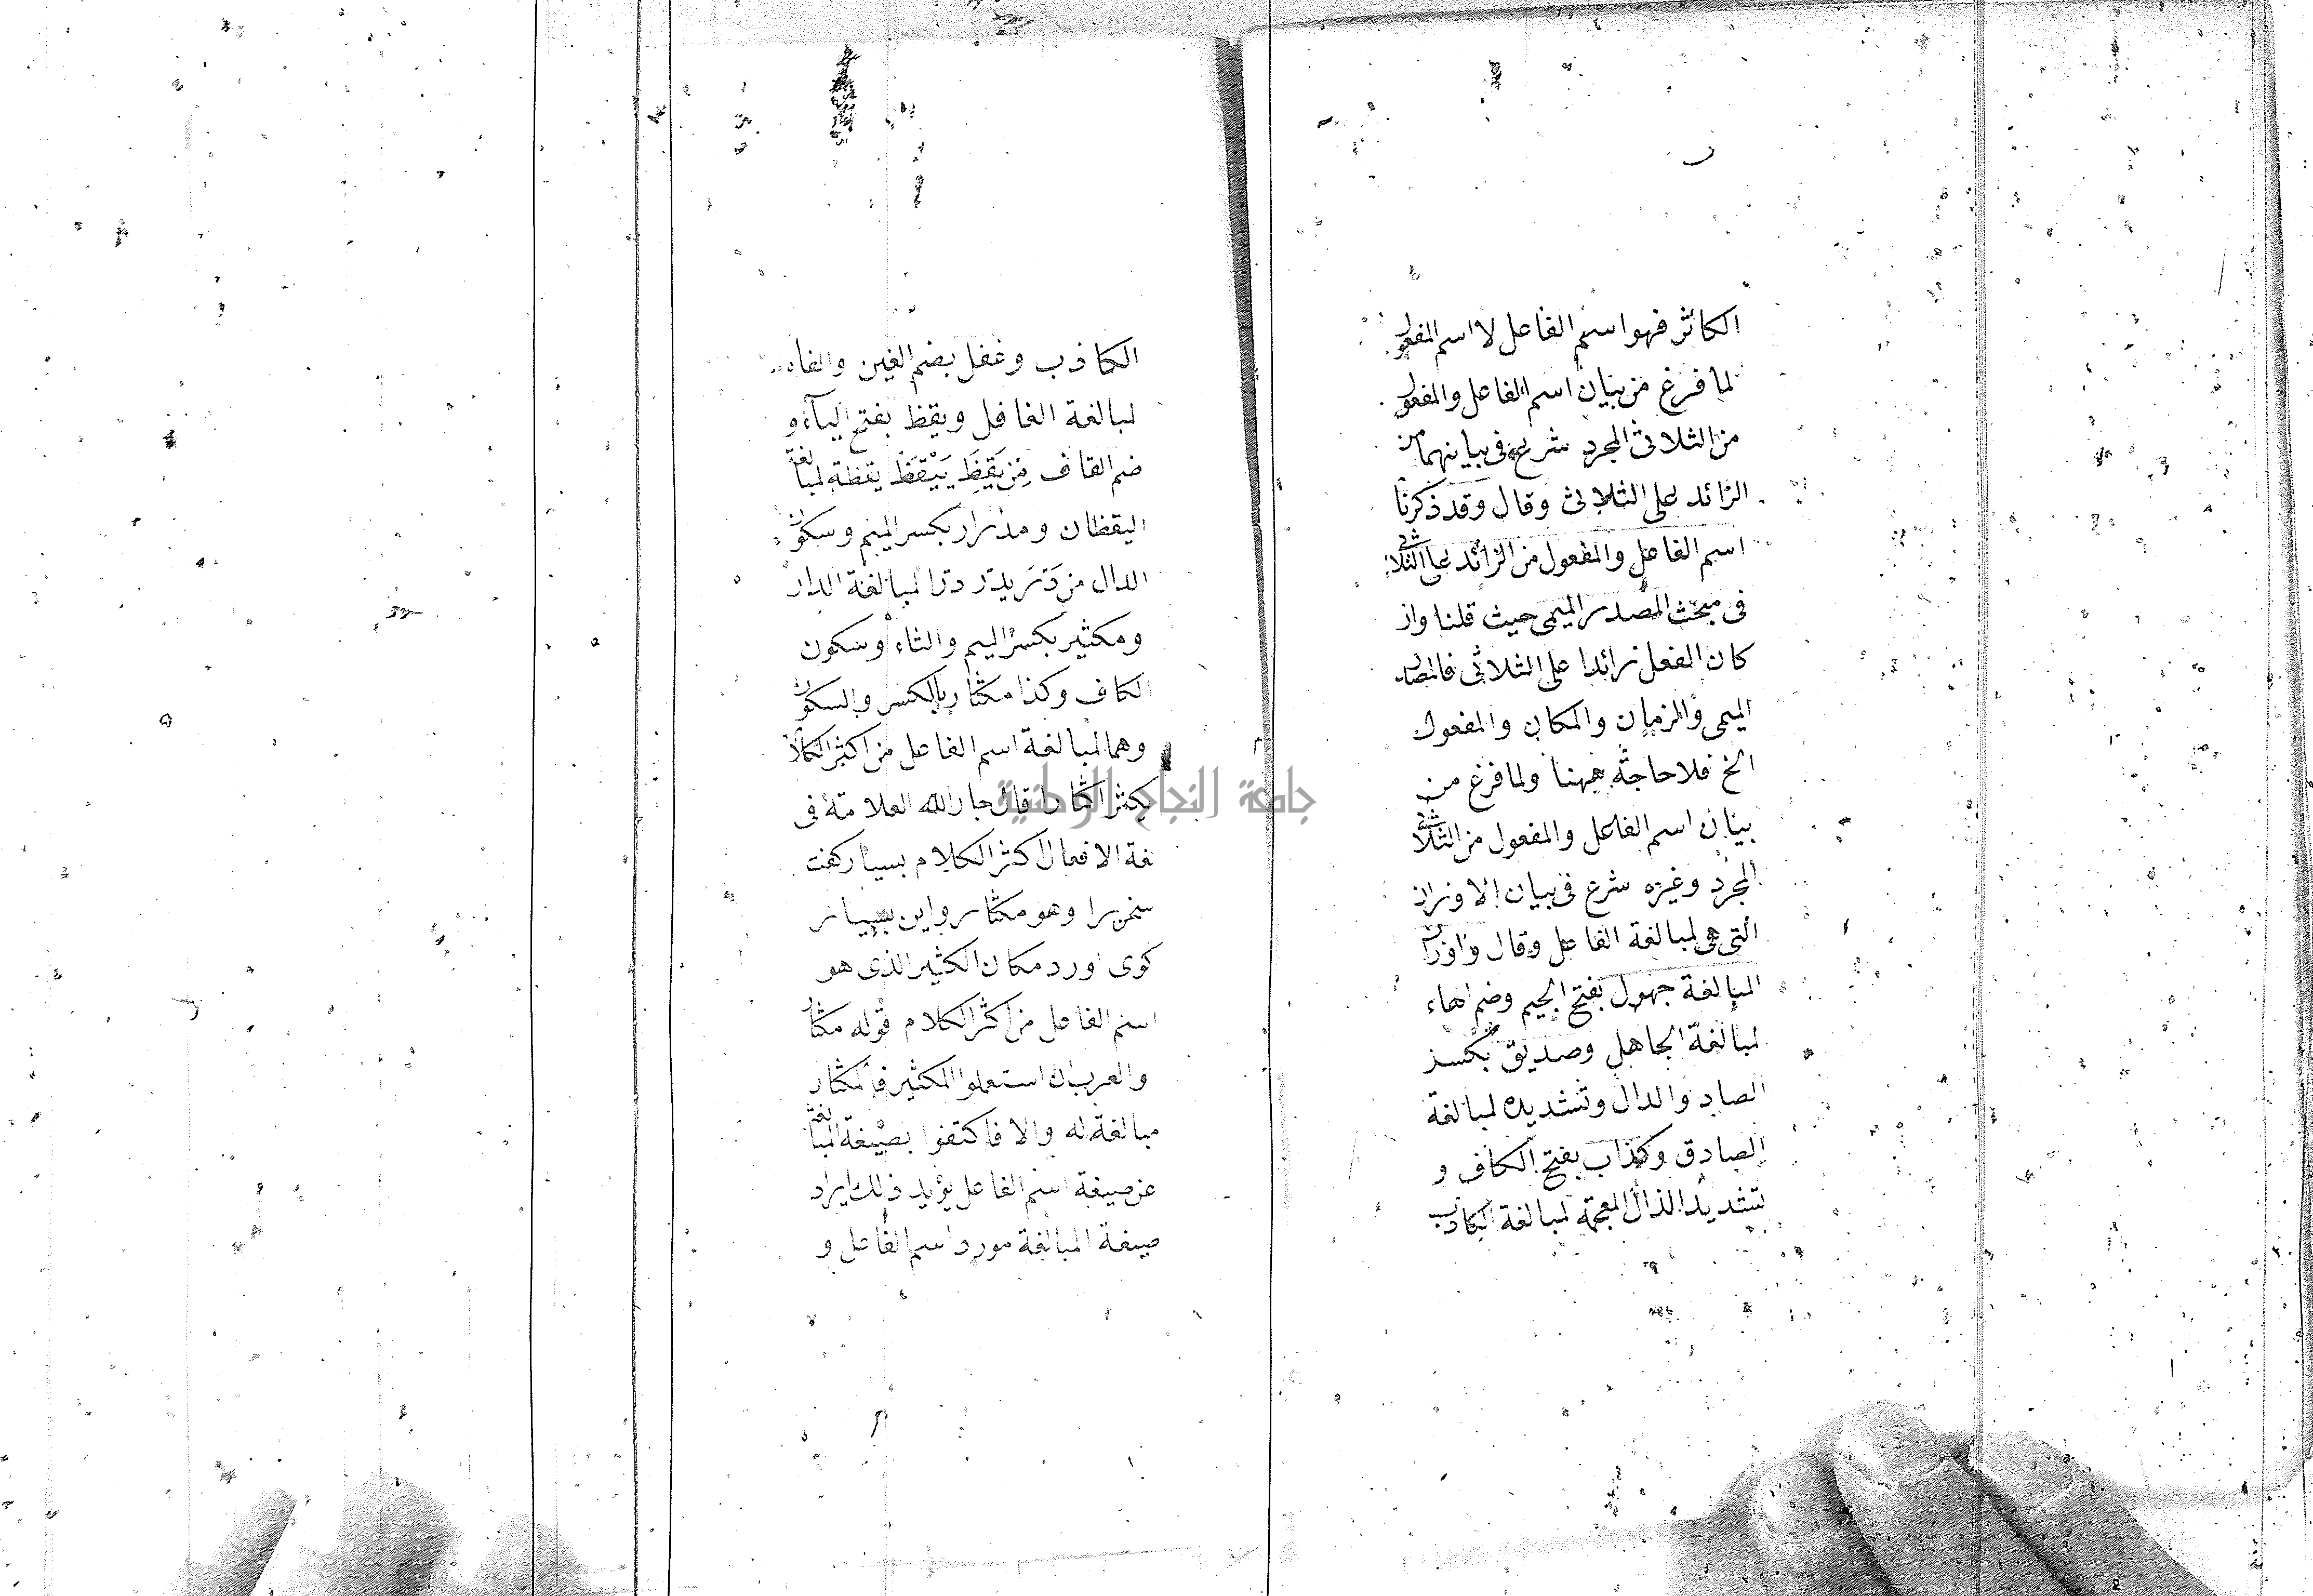 الكاثر فهو اسم الفاعل لا اسم المفعول
لما فرغ من بيان اسم الفاعل والمفعول
من الثلاثى المجرد شرع فى بيانهما من
الزائد على الثلاثى وقال وقد ذكرنا
اسم الفاعل والمفعول من الزائد على الثلاثى
فى مبحث المصدر الميمى حيث قلنا وان
كان الفعل زائدا على الثلاثى فالمصدر
الميمى والزمان والمكان والمفعول
الخ فلا حاجة ههنا ولما فرغ من
بيان اسم الفاعل والمفعول من الثلاثى
المجرد وغيره شرع فى بيان الاوزان
التى هى لمبالغة الفاعل وقال واوزان
المبالغة جهول بفتح الجيم وضم الهاء
لمبالغة الجاهل وصديق بكسر
الصاد والدال وتشديده لمبالغة
الصادق وكذاب بفتح الكاف و
تشديد الذال المعجمة لمبالغة الكاذب
الكاذب وغفل بضم الغين والفاء
لمبالغة الغافل ويقظ بفتح الياء و
ضم القاف من يَقِظَ يَيْقَظُ يقظة لمبالغة
اليقظان ومدرار بكسر الميم وسكون
الدال من دَرَّ يدر درا لمبالغة الدار
ومكثير بكسر الميم والثاء وسكون
الكاف وكذا مكثار بالكسر والسكون
وهما لمبالغة اسم الفاعل من اكثر الكلام
يكثر اكثارا قال جار الله العلامة فى
الافعال اكثر الكلام بسيار كفت
سخن را وهو مكثار واين بسيار
كوى اورد مكان الكثير الذى هو
اسم الفاعل من اكثر الكلام قوله مكثار
والعرب ان استعملوا المكثير فالمكثار
مبالغة له والا فاكتفوا بصيغة المبالغة
عن صيغة اسم الفاعل يؤيد ذلك ايراد
صيغة المبالغة مورد اسم الفاعل و
جامعة النجاح الوطنية